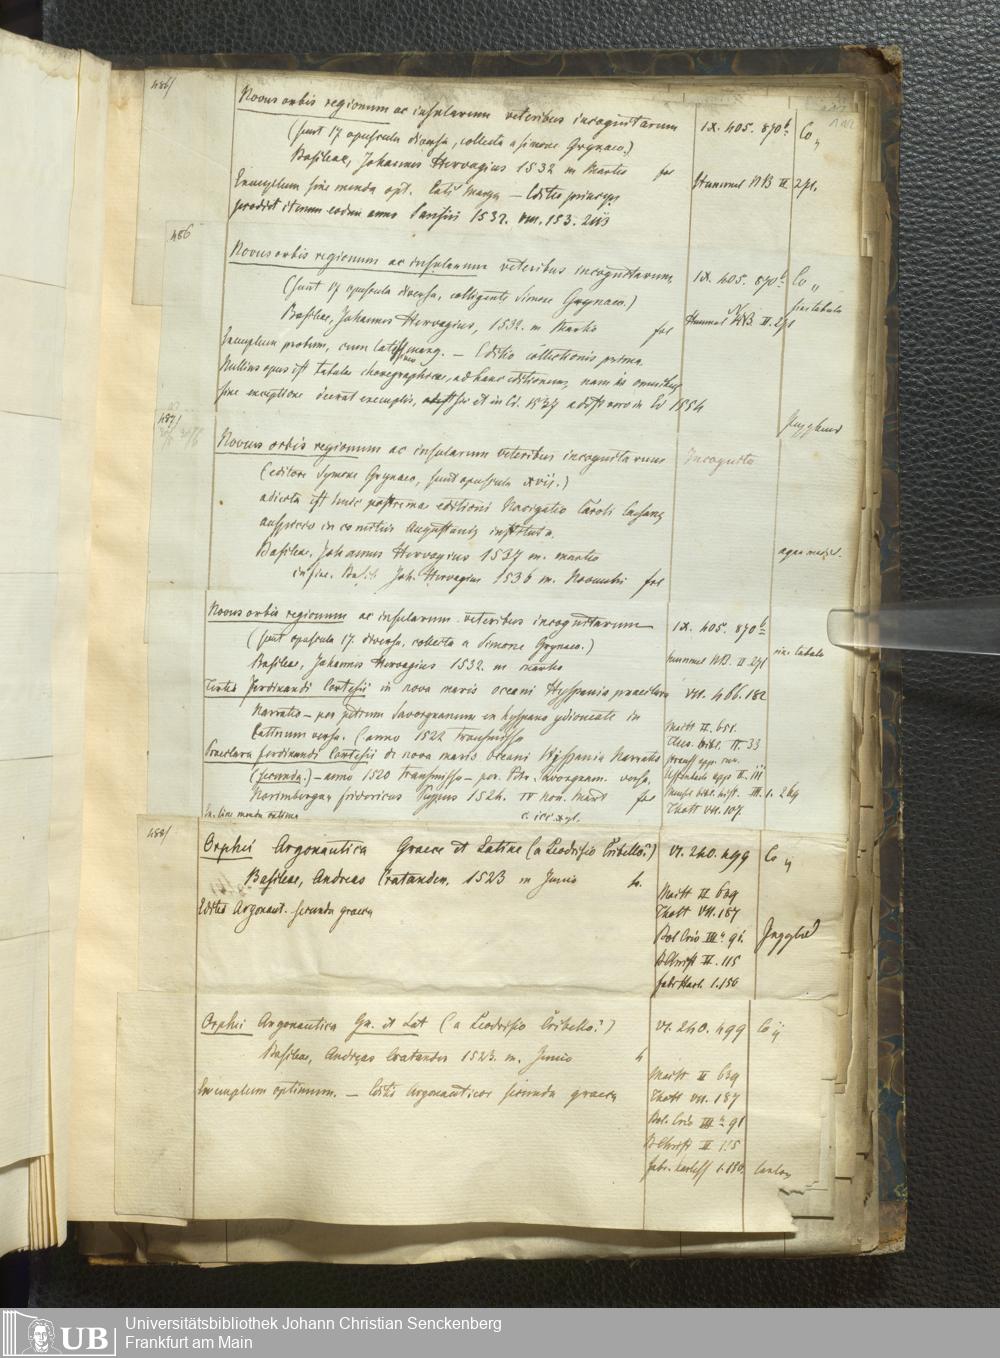 485/
Novus orbis regionum ac insularum veteribus incognitarum
IX. 405. 870b
Co
(sunt 17 opuscula diversa, collecta a Simone Grynaeo.)
Basileae, Johannes Hervagius 1532 m Martio fol
Hummel NB II 271.
Exemplum sine menda opt. Editio princeps
prodiit iterum eodem anno Parisiis 1532. VIII. 153.
486
Novus orbis regionum ac insularum veteribus incognitarum,
IX. 405. 870b
Co
(sunt 17 opuscula diversa, colligente Simone Grynaeo.)
sine tabula
Basileae, Johannes Hervagius, 1532. m Martio fol
Hummel NB. II. 271
Exemplum probum, cum latiss. marg. — Editio collectionis prima.
Nullius opus est tabulae chorographicae, ad hanc editionem, nam in omnibus
sine exceptione deerat exemplis, et in Ed. 1537 adest vero in Ed 1554
487/
Novus orbis regionum ac insularum veteribus incognitarum
Incognita
(editore Symone Grynaeo, sunt opuscula xvij.)
adiecta est huic postremae editioni Navigatio Caroli Caesaris
auspicio in comitiis Augustanis instituta.
Basileae, Johannes Hervagius 1537 m. martio
in fine. Basil. Joh. Hervagius 1536 m. Novembri fol
Novus orbis regionum ac insularum veteribus incognitarum
IX. 405. 870b
(sunt opuscula 17. diversa, collecta a Simone Grynaeo.)
sine tabula
Basileae, Johannes Hervagius 1532. m martio
hummel NB. II 271
Tertia ferdinandi Cortesii in nova maris oceani Hyspania praeclara
VII. 466. 182
Narratio — per petrum Savorgnanum ex hyspano ydiomate in
Latinum versa. (anno 1522 transmissa
Maitt II. 651.
Praeclara ferdinandi Cortesii de nova maris Oceani Hyspania Narratio
(secunda.) — anno 1520 transmissa — per. Petr. Savorgnan. versa.
Norimbergae fridericus Peypus 1524. IV non. Mart fol
III. 1. 269
Thott VII. 107.
488/
Orphei Argonautica Graece et Latine (a Leodrisio Cribello.)
VI. 240. 499
Co
Basileae, Andreas Cratander. 1523 m Junio
Maitt II 639
Editio Argonaut. secunda graeca
Thott VII. 187
Bol Crio III. 91.
B Christ II. 115
fabr Harl. 1. 150
Orphei Argonautica Gr. et Lat (a Leodrisio Cribello.)
VI. 240. 499
Co
Basileae, Andreas Cratander 1523. m. Junio 4
Maitt II 639
Exemplum optimum. — Editio Argonauticor secunda graeca
Thott VII. 187
Bol. Crio III. 91
B Christ II 115
fabr. harless 1. 150.
UB
Universitätsbibliothek Johann Christian Senckenberg
Frankfurt am Main